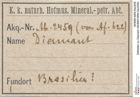 K. k. naturh. Hofmus. Mineral.-petr. Abt.
Akq.-Nr. Ab. 2459 (von Af. 622)
Name Diamant
Fundort Brasilien?